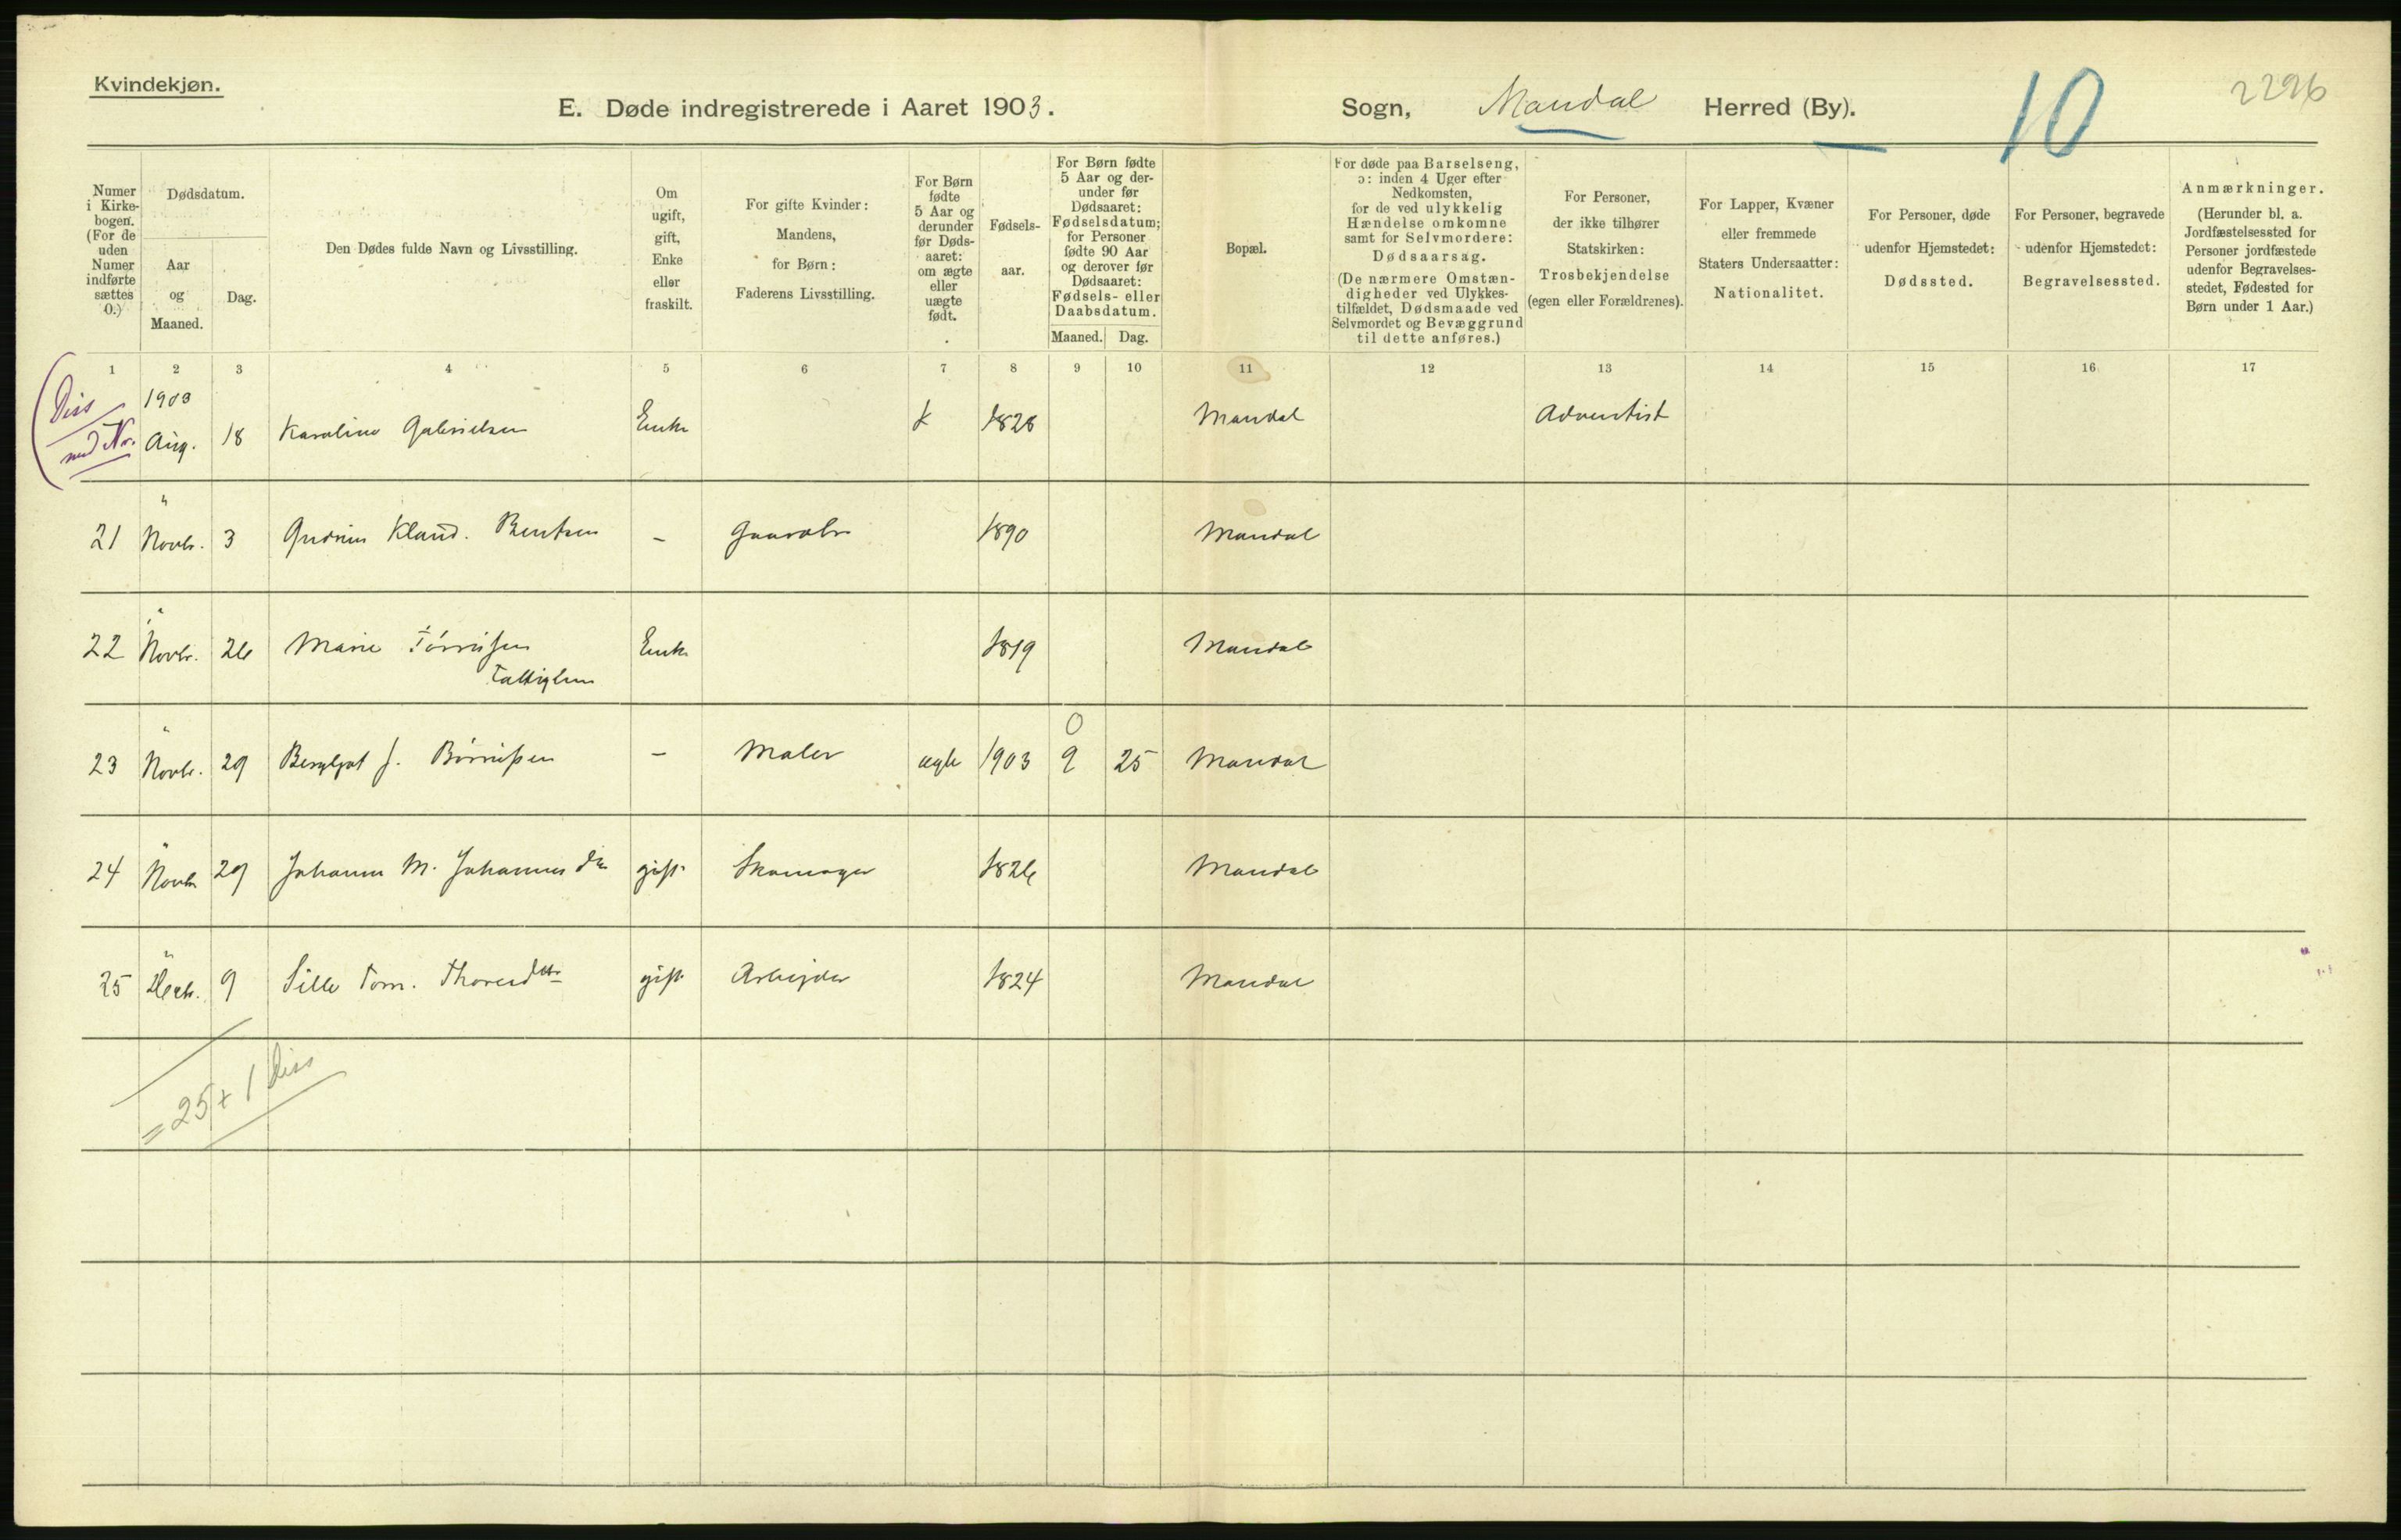 Kvindekjøn.
E. Døde indregistrerede i Aaret 1903. Sogn, Mandal Herred (By). 10 2296
Numer i Kirkebogen. (For de uden Numer indførte sættes 0.)
Dødsdatum.
Aar og Maaned.
Dag.
Den Dødes fulde Navn og Livsstilling.
Om ugift, gift, Enke eller fraskilt.
For gifte Kvinder: Mandens, for Børn: Faderens Livsstilling.
For Børn fødte 5 Aar og derunder før Dødsaaret: om ægte eller uægte født.
Fødselsaar.
For Børn fødte 5 Aar og derunder før Dødsaaret: Fødselsdatum; for Personer fødte 90 Aar og derover før Dødsaaret: Fødsels- eller Daabsdatum.
Maaned. Dag.
Bopæl.
For døde paa Barselseng, ɔ: inden 4 Uger efter Nedkomsten, for de ved ulykkelig Hændelse omkomne samt for Selvmordere: Dødsaarsag. (De nærmere Omstændigheder ved Ulykkestilfældet, Dødsmaade ved Selvmordet og Bevæggrund til dette anføres.)
For Personer, der ikke tilhører Statskirken: Trosbekjendelse (egen eller Forældrenes).
For Lapper, Kvæner eller fremmede Staters Undersaatter: Nationalitet.
For Personer, døde udenfor Hjemstedet: Dødssted.
For Personer, begravede udenfor Hjemstedet: Begravelsessted.
Anmærkninger. (Herunder bl. a. Jordfæstelsessted for Personer jordfæstede udenfor Begravelsesstedet, Fødested for Børn under 1 Aar.)
1 2 3 4 5 6 7 8 9 10 11 12 13 14 15 16 17
Diss 1903
Nr. Aug. 18 Karoline Gabrielsen Enke 1828 Mandal Adventist
"
21 Novbr. 3 Gudrun Kland. Bentsen – 1890 Mandal
"
22 Novbr. 26 Marie Tørrissen Enke 1819 Mandal
Fattiglem
" 0
23 Novbr. 29 Bergljot J. Børrisen – Maler ægte 1903 9 25 Mandal
"
24 Novbr 29 Johanne M. Johannesdtr gift Skomager 1826 Mandal
"
25 Decbr. 9 Sille Tom. Thoresdtr gift Arbejder 1824 Mandal
= 25 + 1 Diss